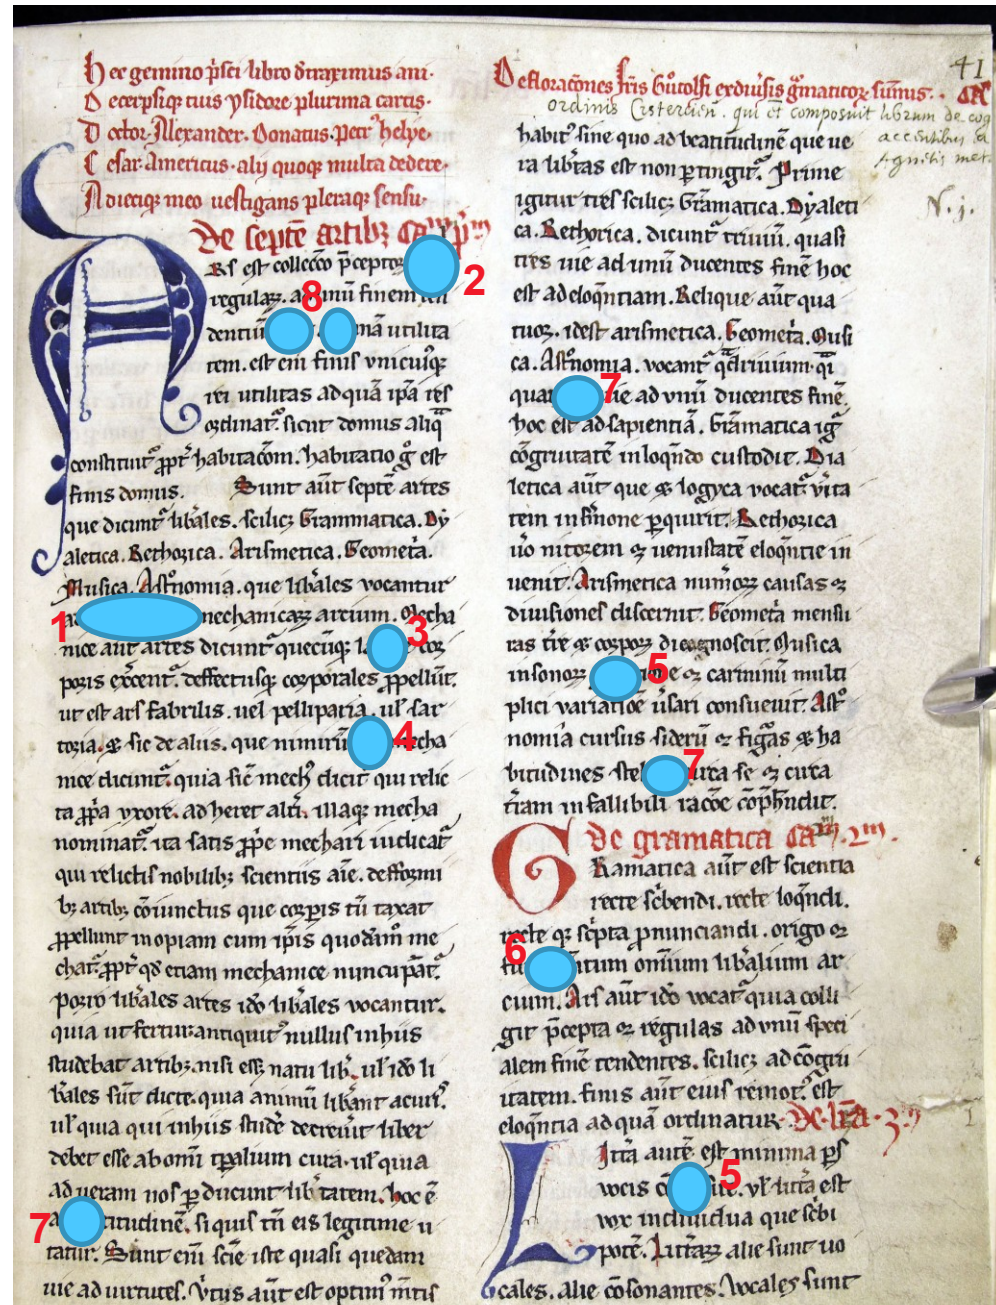 Hec gemino p̄sci libro dͣtraximus ani.
Decerpsiq; tuis ysidore plurima cartis.
Doctor Alexander. Donatus. petrꝰ helye.
Cesar. Americus. alij quoq; multa dedere.
Adieciq; meo uestigans pleraq; sensu.
De septē artibꝫ
Ars est collecc̄o p̄ceptoꝝ 2
regulaꝝ. ad unū finem
dentiū 8 utilita
tem. est eī finis vnicuiq;
rei utilitas ad quā ip̄a res
ordinat᷑. sicut domus aliq̄
constituit᷑ ꝓpt᷑ habitac̄om. habitatio g̊ est
finis domus. Sunt aūt septē artes
que dicunt᷑ lib̄ales. scilicꝫ Grammatica. Dy
aletica. Rethorica. Arismetica. Geomet̄a.
Musica. Ast̊nomia. que lib̄ales vocantur
1 mechanicaꝝ artium. Mecha
nice aūt artes dicunt᷑ quecūq; 3 cor
poris exc̄ent᷑. deffectusq; corporales ꝓpellūt.
ut est ars fabrilis. uel pelliparia. ul̓ sar
toria. ⁊ sic de aliis. que nimirū 4 mecha
nice dicunt᷑. quia sic̄ mechꝰ dicit᷑ qui relic
ta ꝓp̄a vxore. adheret alt̄i. illaq; mecha
nominat᷑. ita satis ꝓp̄e mechari iudicat᷑
qui relictis nobilibꝫ scientiis aīe. defformi
bꝫ artibꝫ cōiunctus que corp̄is tm̄ taxat
ꝓpellunt inopiam cum ip̄is quodāmͦ me
chat᷑. ꝓpt᷑ qd̄ etiam mechanice nuncupāt᷑.
porro lib̄ales artes idō lib̄ales vocantur.
quia ut fertur antiquitꝰ nullus in hiis
studebat artibꝫ. nisi essꝫ natu lib̄. ul̓ idō li
b̄ales sūt dicte. quia animū lib̄ant acuit᷑.
ul̓ quia qui in hiis studē decreuit liber
debet esse ab omī tp̄alium cura. ul̓ quia
ad ueram nos ꝑducunt lib̄tatem. hoc ē
7 titudinē. si quis tn̄ eis legitime u
tatur. Sunt eī scīe iste quasi quedam
uie ad uirtutes. V̄tus aūt est optim̄ m̄tis
41
Defloraciones fr̄is Gūtolfi ex diūsis gͣmaticoꝝ sūmis.
ordinis Cistercien̄. qui et̄ composuit librum de cog
accentibus
Agnetis met.
N. j.
habitꝰ sine quo ad beatitudinē que ue
ra lib̄tas est non ꝑtingit᷑. Prime
igitur tres scilicꝫ Gͣmatica. Dyaleti
ca. Rethorica. dicunt᷑ triuiū. quasi
tres uie ad unū ducentes finē hoc
est ad eloq̄ntiam. Relique aūt qua
tuor. idest arismetica. Geomet̄a. Musi
ca. Ast̊nomia. vocant᷑ qͣdriuium. qͣi
quat 7 uie ad vnū ducentes finē.
hoc est ad sapientiā. Gͣmatica ig᷑
cōgruitatē in loq̄ndo custodit. Dia
letica aūt que ⁊ logyca vocat᷑ v̄ita
tem in s̄mone ꝑquirit. Rethorica
u̓o nitorem ⁊ uenustatē eloq̄ntie in
uenit. Arismetica num̄oꝝ causas ⁊
diuisiones discernit. Geomet̄a mensu
ras t̄re ⁊ corpoꝝ dinoscit. Musica
in sonoꝝ 5 ⁊ carminū multi
plici variatioē usari consueuit. Ast̊
nomia cursus siderū ⁊ figͣas ⁊ ha
bitudines stel 7 cura
t̄iam infallibili rac̄oe cōp̄hndit.
De gramatica Caᵐ. 2ᵐ.
Gramatica aūt est scientia
recte sc̄bendi. recte loq̄ndi.
recteq; sc̄pta pronunciandi. origo ⁊
6 omnium lib̄alium ar
cium. Ars aūt idō vocat᷑ quia colli
git p̄cepta ⁊ regulas ad vnū speci
alem finē tendentes. scilicꝫ ad cōgru
itatem. finis aūt eius remotꝰ est
eloq̄ntia ad quā ordinatur. De lr̄a. 3.
Lit̄a autē est minima ps̄
vocis 5 vl̓ litt̄a est
vox indiuidua que sc̄bi
potē. Litt̄aꝝ alie sunt uo
cales. alie cōsonantes. Vocales sunt